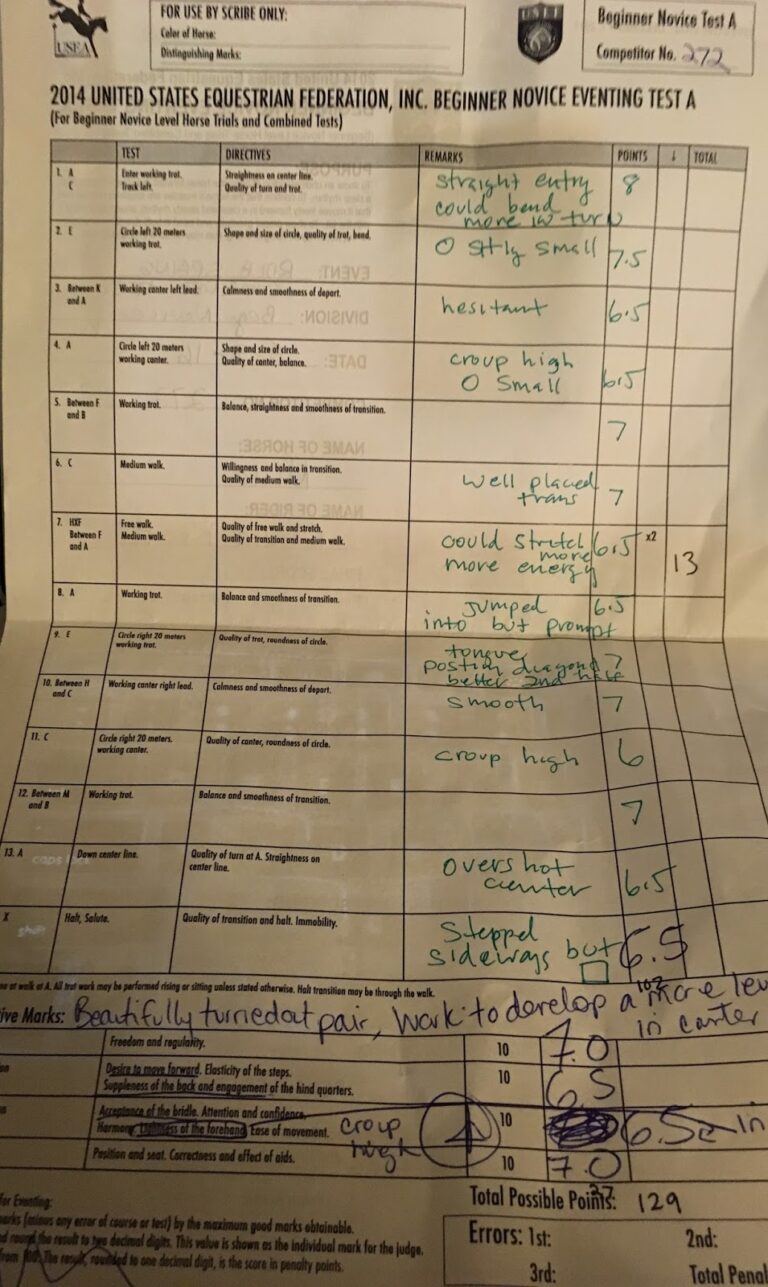 FOR USE BY SCRIBE ONLY:
Color of Horse:
Distinguishing Marks:
USEA
USEF
Beginner Novice Test A
Competitor No. 272
2014 UNITED STATES EQUESTRIAN FEDERATION, INC. BEGINNER NOVICE EVENTING TEST A
(For Beginner Novice Level Horse Trials and Combined Tests)
TEST DIRECTIVES REMARKS POINTS TOTAL
1. A Enter working trot. Straightness on center line. straight entry 8
C Track left. Quality of turn and trot. could bend
more in turn
2. E Circle left 20 meters Shape and size of circle, quality of trot, bend. O sltly small 7.5
working trot.
3. Between K Working canter left lead. Calmness and smoothness of depart. hesitant 6.5
and A
4. A Circle left 20 meters Shape and size of circle. croup high 6.5
working canter. Quality of canter, balance. O small
5. Between F Working trot. Balance, straightness and smoothness of transition. 7
and B
6. C Medium walk. Willingness and balance in transition. well placed 7
Quality of medium walk. trans
7. HXF Free walk. Quality of free walk and stretch. could stretch 6.5 x2 13
Between F Medium walk. Quality of transition and medium walk. more
and A more energy
8. A Working trot. Balance and smoothness of transition. Jumped 6.5
into but prompt
9. E Circle right 20 meters Quality of trot, roundness of circle. tongue 7
working trot. better 2nd half
10. Between H Working canter right lead. Calmness and smoothness of depart. smooth 7
and C
11. C Circle right 20 meters. Quality of canter, roundness of circle. croup high 6
working canter.
12. Between M Working trot. Balance and smoothness of transition. 7
and B
13. A Down center line. Quality of turn at A. Straightness on overshot 6.5
center line. center
X Halt, Salute. Quality of transition and halt. Immobility. Stepped 6.5
sideways but □
at walk at A. All trot work may be performed rising or sitting unless stated otherwise. Halt transition may be through the walk.
102
ive Marks: Beautifully turned out pair, Work to develop a more leve
in canter
Freedom and regularity. 10 7.0
Desire to move forward. Elasticity of the steps. 10 6.5
Suppleness of the back and engagement of the hind quarters.
Acceptance of the bridle. Attention and confidence. 10 6.5 in
Harmony Lightness of the forehand Ease of movement. croup
high
Position and seat. Correctness and effect of aids. 10 7.0
27
Total Possible Points: 129
for Eventing:
marks (minus any error of course or test) by the maximum good marks obtainable.
d round the result to two decimal digits. This value is shown as the individual mark for the judge.
from 100. The result, rounded to one decimal digit, is the score in penalty points.
Errors: 1st: 2nd:
3rd: Total Penal